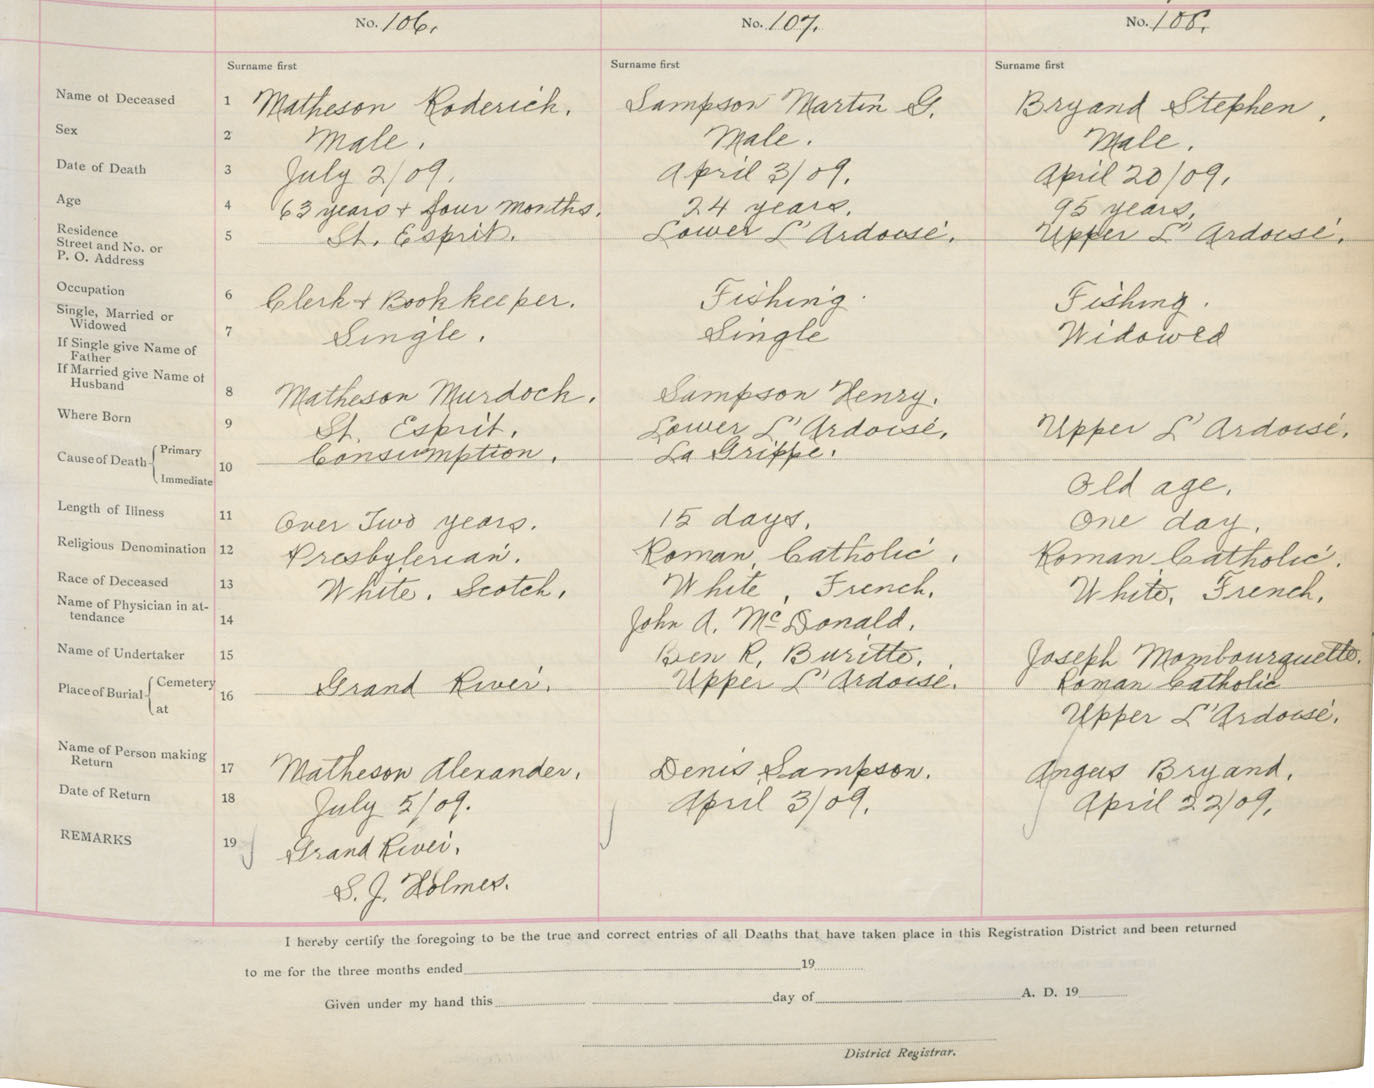 No. 106. No. 107. No. 108.
Surname first Surname first Surname first
Name of Deceased 1 Matheson Roderick. Sampson Martin G. Bryand Stephen.
Sex 2 Male. Male. Male.
Date of Death 3 July 2/09. April 3/09. April 20/09.
Age 4 63 years + four months. 24 years. 95 years.
Residence Street and No. or P. O. Address 5 St. Esprit. Lower L'Ardoise. Upper L'Ardoise.
Occupation 6 Clerk + Bookkeeper. Fishing. Fishing.
Single, Married or Widowed 7 Single. Single Widowed
If Single give Name of Father
If Married give Name of Husband 8 Matheson Murdock. Sampson Henry.
Where Born 9 St. Esprit. Lower L'Ardoise. Upper L'Ardoise.
Cause of Death Primary 10 Consumption. La Grippe.
Immediate Old age.
Length of Illness 11 Over Two years. 15 days. One day.
Religious Denomination 12 Presbyterian. Roman Catholic. Roman Catholic.
Race of Deceased 13 White. Scotch. White, French. White, French.
Name of Physician in attendance 14 John A. McDonald.
Name of Undertaker 15 Ben R. Buritte. Joseph Mombourquette.
Place of Burial Cemetery 16 Grand River. Upper L'Ardoise. Roman Catholic
at Upper L'Ardoise.
Name of Person making Return 17 Matheson Alexander. Denis Sampson. Angus Bryand.
Date of Return 18 July 5/09. April 3/09. April 22/09.
REMARKS 19 Grand River.
S. J. Holmes.
I hereby certify the foregoing to be the true and correct entries of all Deaths that have taken place in this Registration District and been returned
to me for the three months ended 19
Given under my hand this day of A. D. 19
District Registrar.